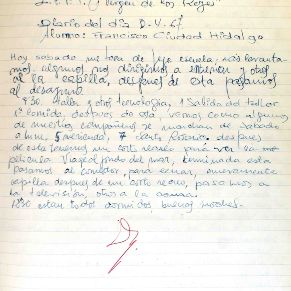 Virgen de los Reyes
Diario del día D-V-67
Alumno: Francisco Ciudad Hidalgo
Hoy sabado me toca de la escuela, nos levanta-
mos, algunos nos dirigimos a y otros
a la capilla, despues de esta pasamos
al desayuno
9'30. Taller y otros tecnologia, 1 Salida del taller
1'30 comida, despues de esta, vemos como algunos
de nuestros compañeros se marchan de sabado
merienda, 7 Santo Rosario, despues
de esta tenemos un corto recreo para ver la
pelicula Viaje al fondo del mar, terminada esta
pasamos al comedor, para cenar, nuevamente
capilla despues de un corto recreo, pasamos a
la television, otros a la cama.
estan todos dormidos buenas noches.